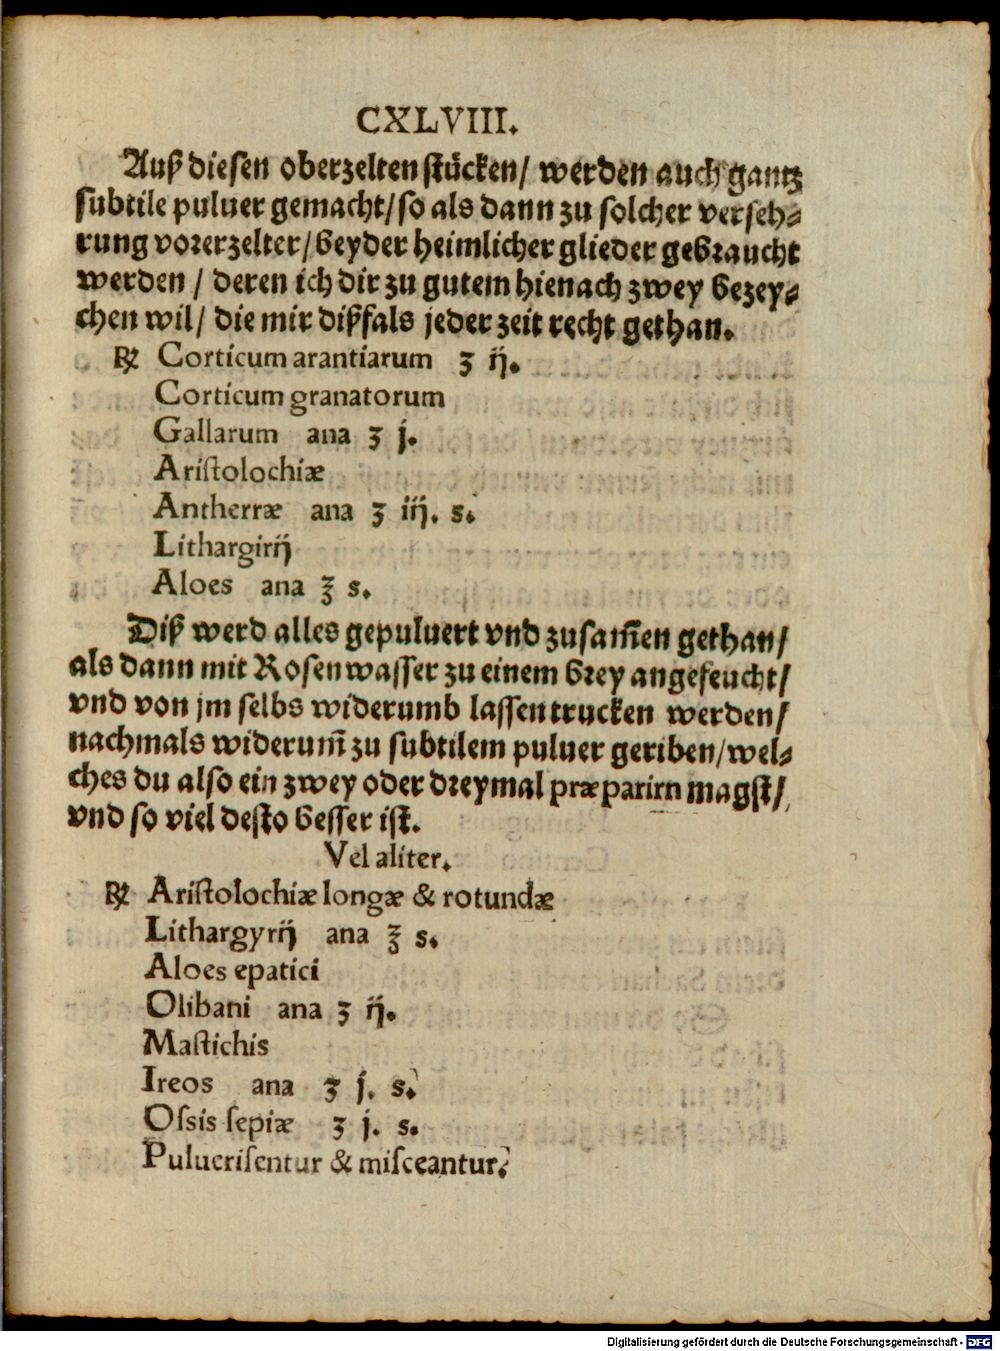 CXLVIII.
Auß diesen oberzelten stücken/ werden auch gantz
subtile puluer gemacht/ so als dann zu solcher verseh⸗
rung vorerzelter/ beyder heimlicher glieder gebraucht
werden / deren ich dir zu gutem hienach zwey bezey⸗
chen wil/ die mir dißfals jeder zeit recht gethan.
℞ Corticum arantiarum ʒ ij.
Corticum granatorum
Gallarum ana ʒ j.
Aristolochiæ
Antherræ ana ʒ iij. s.
Lithargirij
Aloes ana ℥ s.
Diß werd alles gepuluert vnd zusam̃en gethan/
als dann mit Rosenwasser zu einem brey angefeucht/
vnd von jm selbs widerumb lassen trucken werden/
nachmals widerum̃ zu subtilem puluer geriben/ wel⸗
ches du also ein zwey oder dreymal præparirn magst/
vnd so viel desto besser ist.
Vel aliter.
℞ Aristolochiæ longæ & rotundæ
Lithargyrij ana ℥ s.
Aloes epatici
Olibani ana ʒ ij.
Mastichis
Ireos ana ʒ j. s.
Ossis sepiæ ʒ j. s.
Puluerisentur & misceantur.
Digitalisierung gefördert durch die Deutsche Forschungsgemeinschaft - DFG